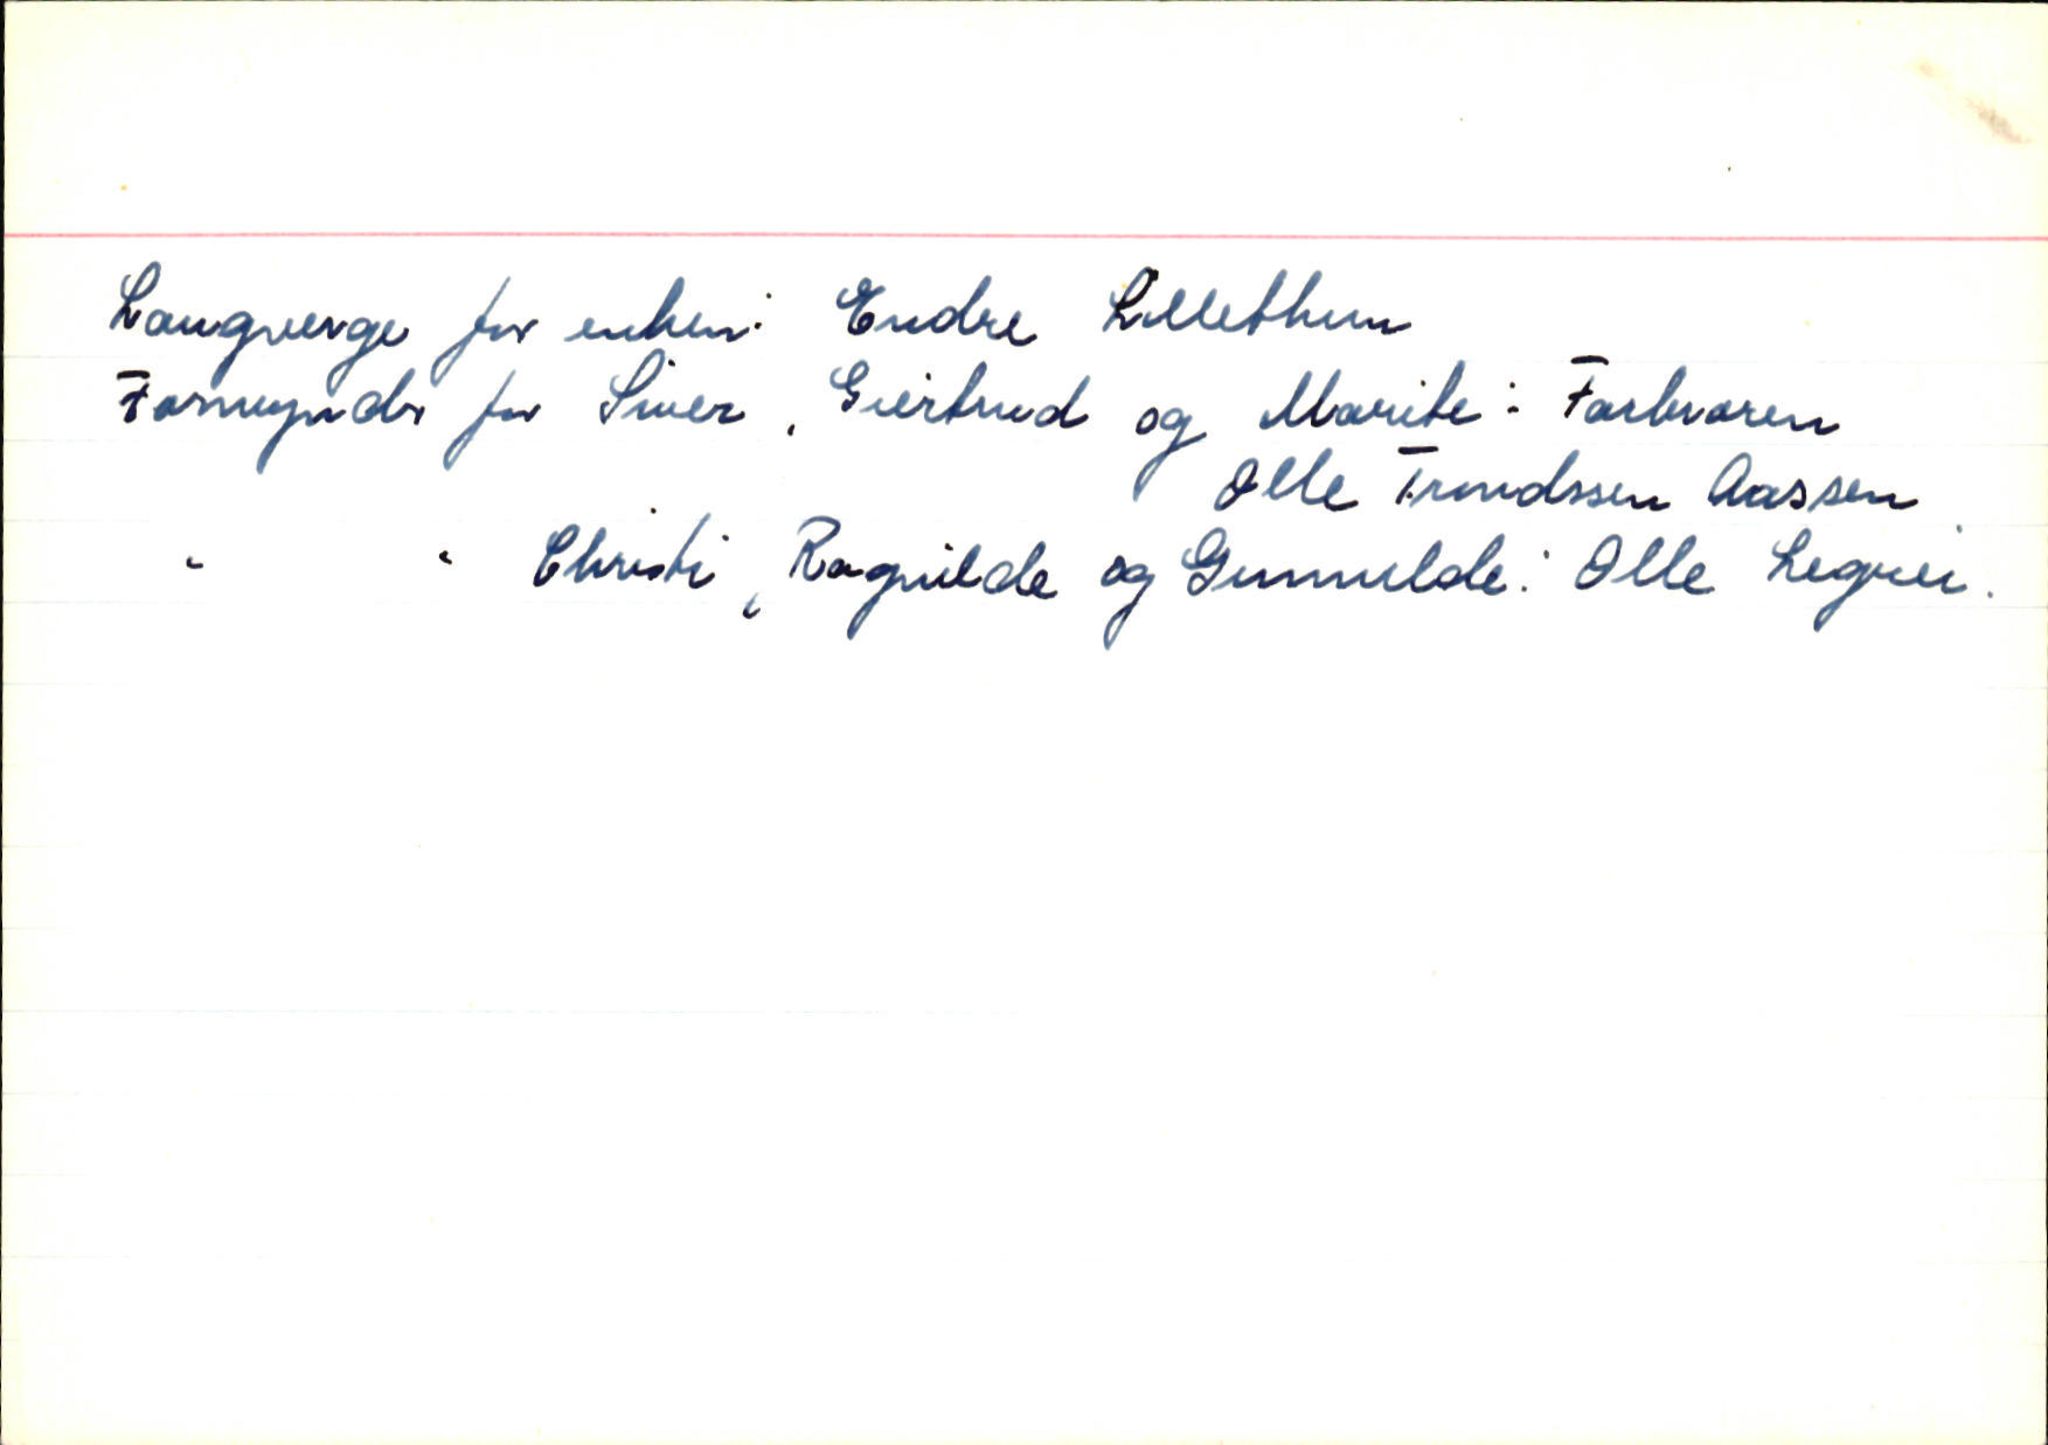 Laugverge for enken: Endre Lillethun
Formynder for Siver, Giertrud og Marite: Farbroren
Olle Trondssen Aassen
" " Christi, Ragnilde og Gunnilde: Olle Legvei.